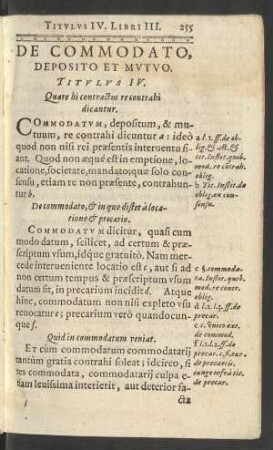 TITVLVS IV. LIBRI III. 255
DE COMMODATO,
DEPOSITO ET MVTVO.
TITVLVS IV.
Quare hi contractus re contrahi
dicantur.
COMMODATVM, depositum, & mu-
tuum, re contrahi dicuntur a : ideò
quod non nisi rei præsentis interuentu fi-
ant. Quod non æquè est in emptione, lo-
catione, societate, mandato; quæ solo con-
sensu, etiam re non præsente, contrahun-
tur b.
a l.1. ff. de ob-
lig. & act. &
tit. Instit. quib.
mod. re contrah.
oblig.
b Tit. Instit. de
oblig. ex con-
sensu.
De commodato, & in quo distet à loca-
tione & precario.
COMMODATVM dicitur, quasi cum
modo datum, scilicet, ad certum & præ-
scriptum vsum, idque gratuitò. Nam mer-
cede interueniente locatio est c, aut si ad
non certum tempus & præscriptum vsum
datum sit, in precarium incidit d. Atque
hinc, commodatum non nisi expleto vsu
reuocatur e; precarium verò quandocun-
que f.
c §. commoda-
re. Instit. quib.
mod. re contr.
oblig.
d l.1. ff. de
precar.
e de commod.
f ff. de
precar.
de precar.
Quid in commodatum veniat.
ET cum commodatum commodatarij
tantùm gratia contrahi soleat; idcirco, si
res commodata, commodatarij culpa e-
tiam leuissima interierit, aut deterior fa-
cta